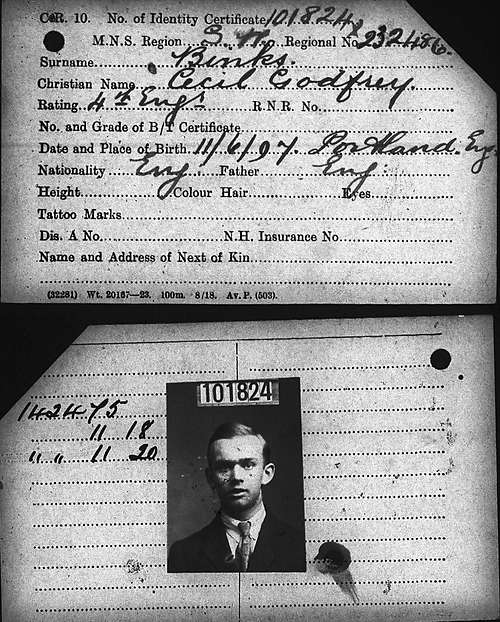 C.R. 10. No. of Identity Certificate 101824
M.N.S. Region S.W. Regional No. 232486.
Surname Binks.
Christian Name Cecil Godfrey.
Rating. 4th Engr R.N.R. No.
No. and Grade of B/T Certificate
Date and Place of Birth. 11/6/97. Portland. Eng
Nationality Eng Father Eng
Height Colour Hair Eyes
Tattoo Marks
Dis. A No. N.H. Insurance No.
Name and Address of Next of Kin
(32281) Wt. 20167—23. 100m. 8/18. Av. P. (503).
101824
142475
11 18
" " 11 20